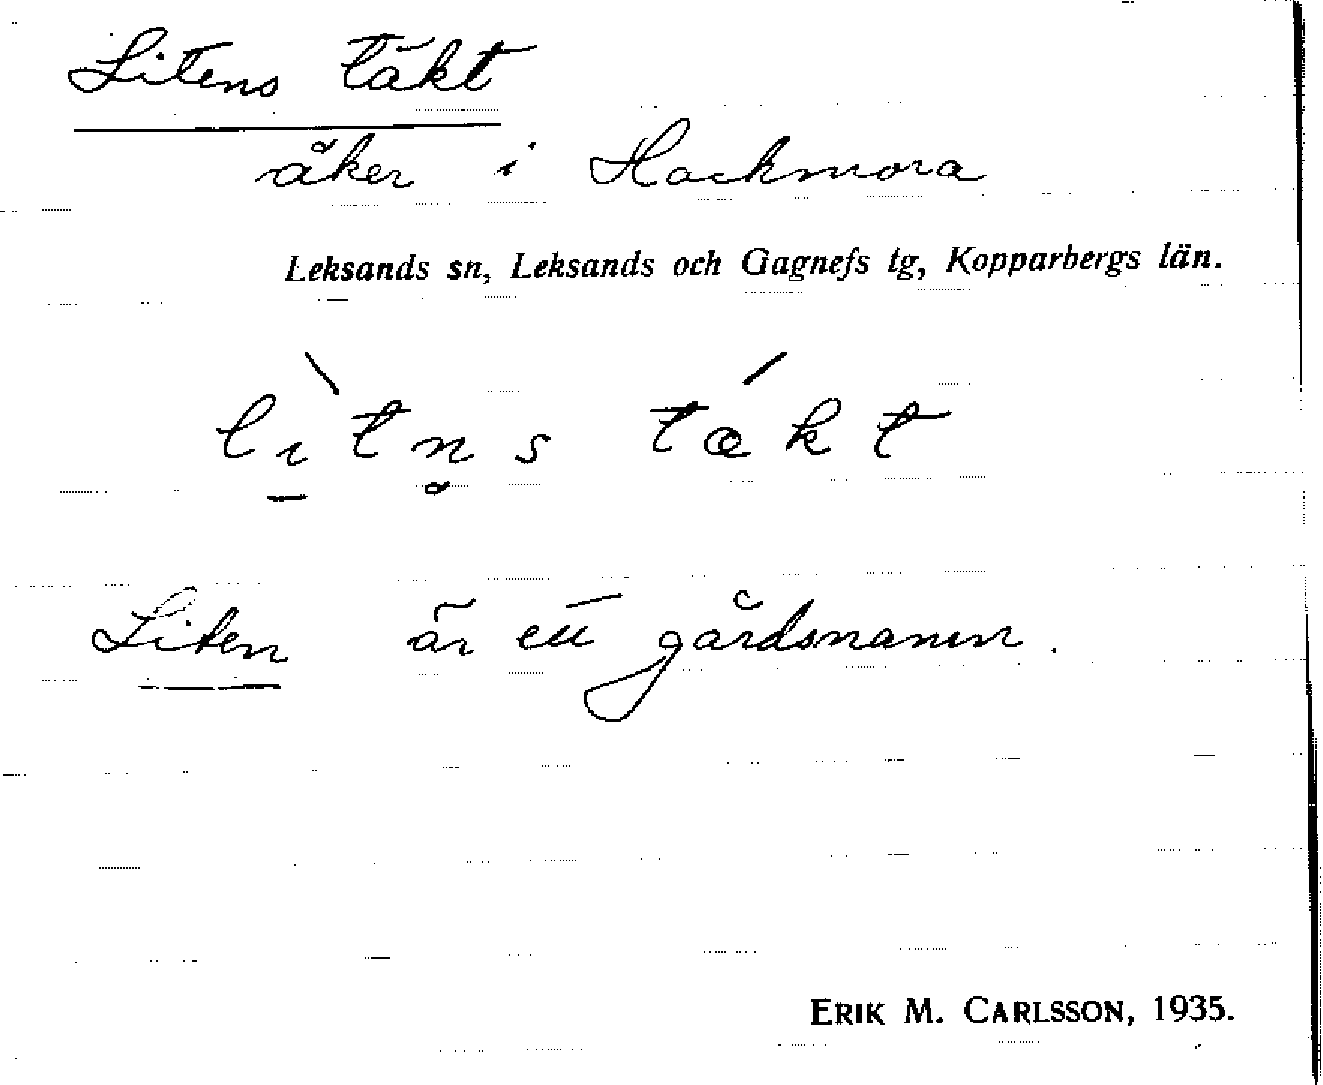 Litens täkt
åker i Hackmora
Leksands sn, Leksands och Gagnefs tg, Kopparbergs län.
lı̱̀tn̥s tǽkt
Liten är ett gårdsnamn.
ERIK M. CARLSSON, 1935.